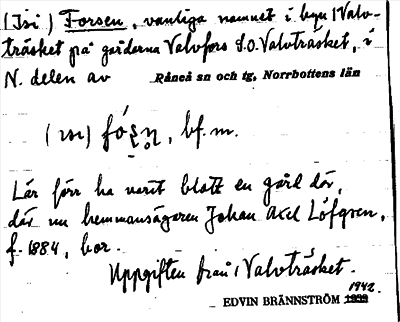 (Isi) Forsen, vanliga namnet i byn Valv-
träsket på gårdarna Valvfors S.O. Valvträsket, i
N. delen av Råneå sn och tg, Norrbottens län
(ısı) fó̄ṣn̥, bf. m.
Lär förr ha varit blott en gård där,
där nu hemmansägaren Johan Axel Löfgren,
f. 1884, bor.
Uppgiften från Valvträsket.
1942
EDVIN BRÄNNSTRÖM 1939